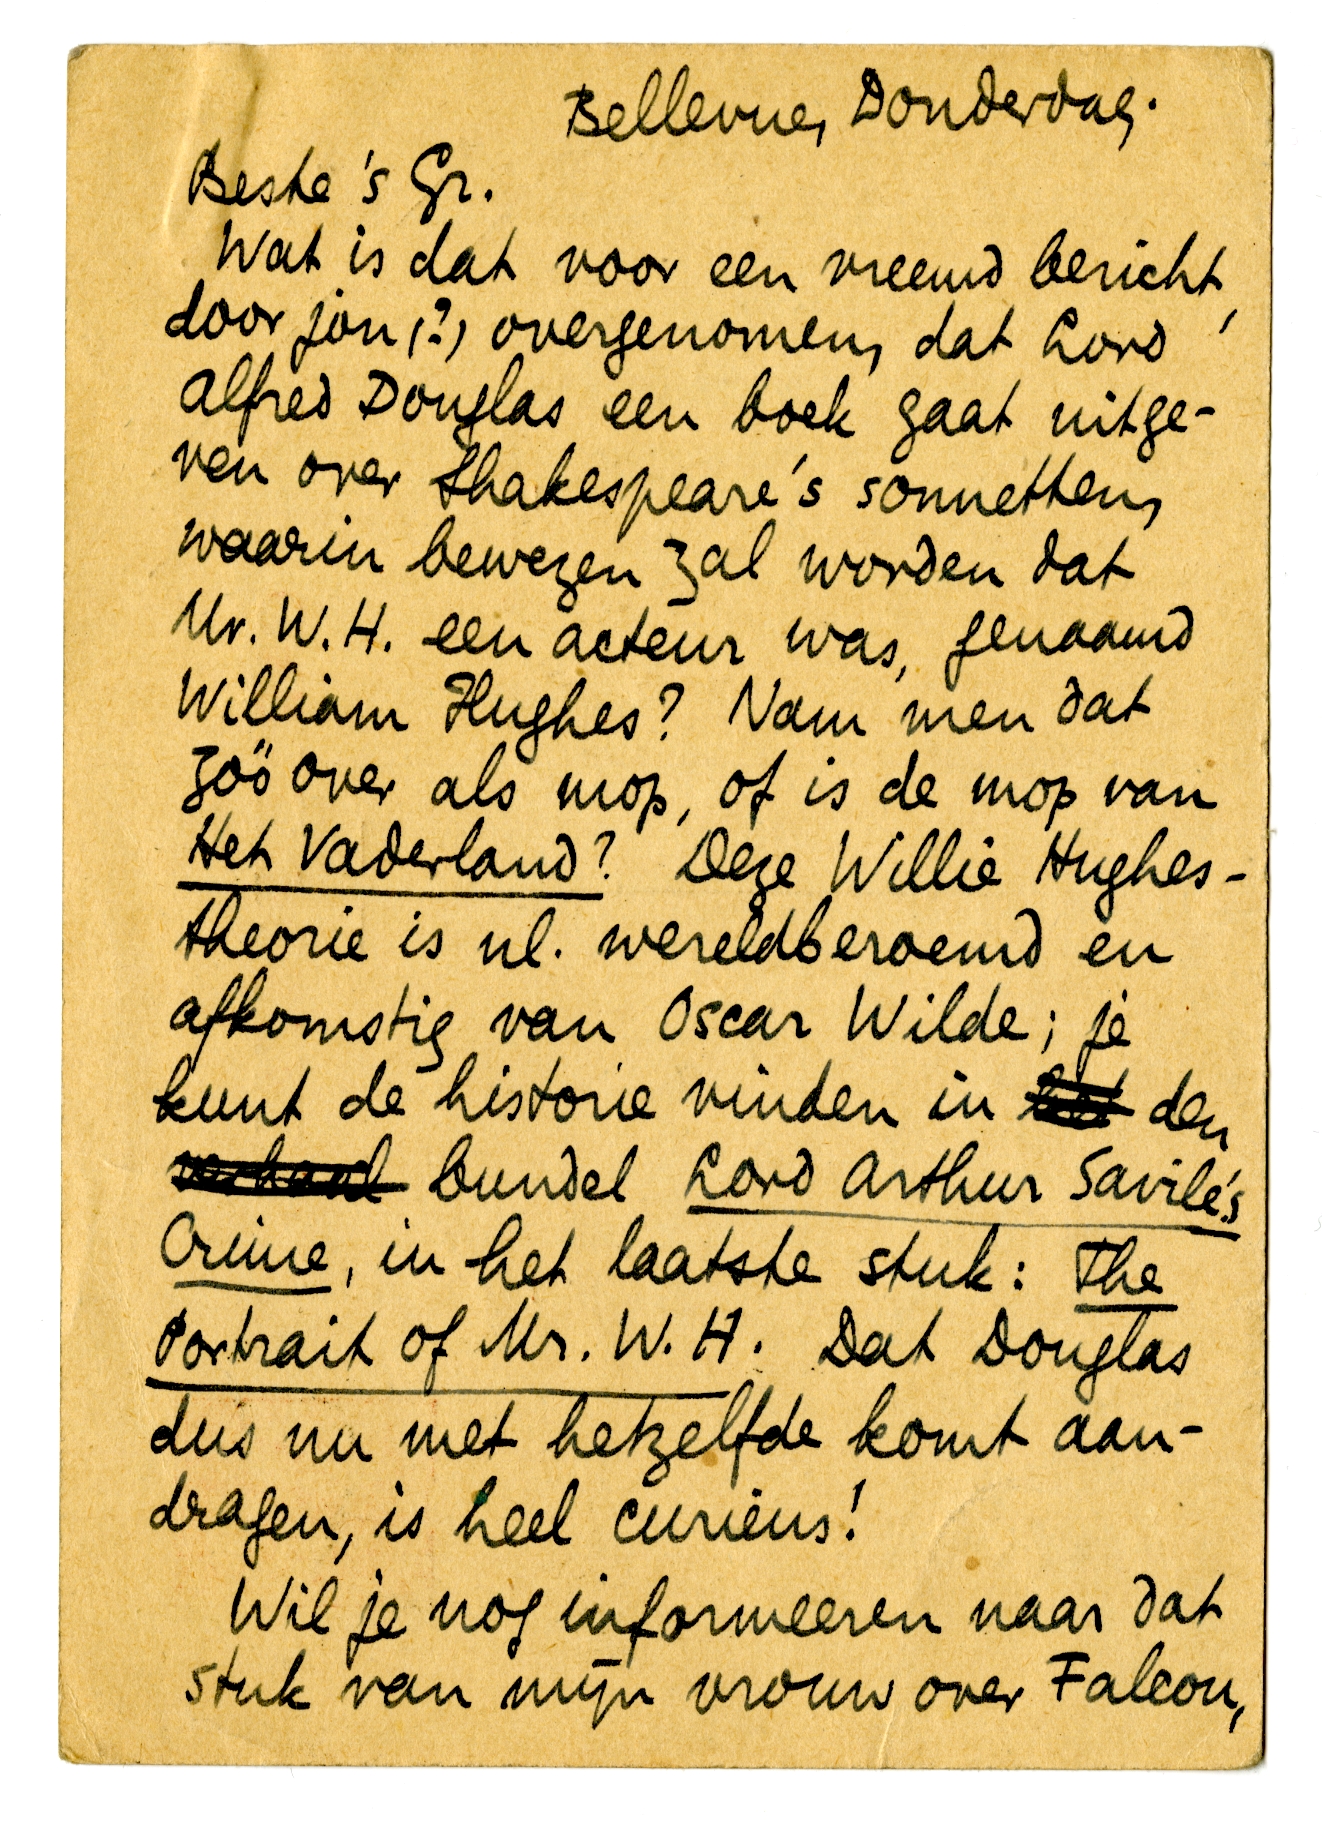 Bellevue, Donderdag.
Beste 's Gr.
Wat is dat voor een vreemd bericht,
door jou (?) overgenomen, dat Lord
Alfred Douglas een boek gaat uitge-
ven over Shakespeare's sonnetten,
waarin bewezen zal worden dat
Mr. W. H. een acteur was, genaamd
William Hughes? Nam men dat
zóó over als mop, of is de mop van
Het Vaderland? Deze Willie Hughes-
theorie is nl. wereldberoemd en
afkomstig van Oscar Wilde; je
kunt de historie vinden in het den
verhaal bundel Lord Arthur Savile's
Crime, in het laatste stuk: The
Portrait of Mr. W. H. Dat Douglas
dus nu met hetzelfde komt aan-
dragen, is heel curieus!
Wil je nog informeeren naar dat
stuk van mijn vrouw over Falcon,